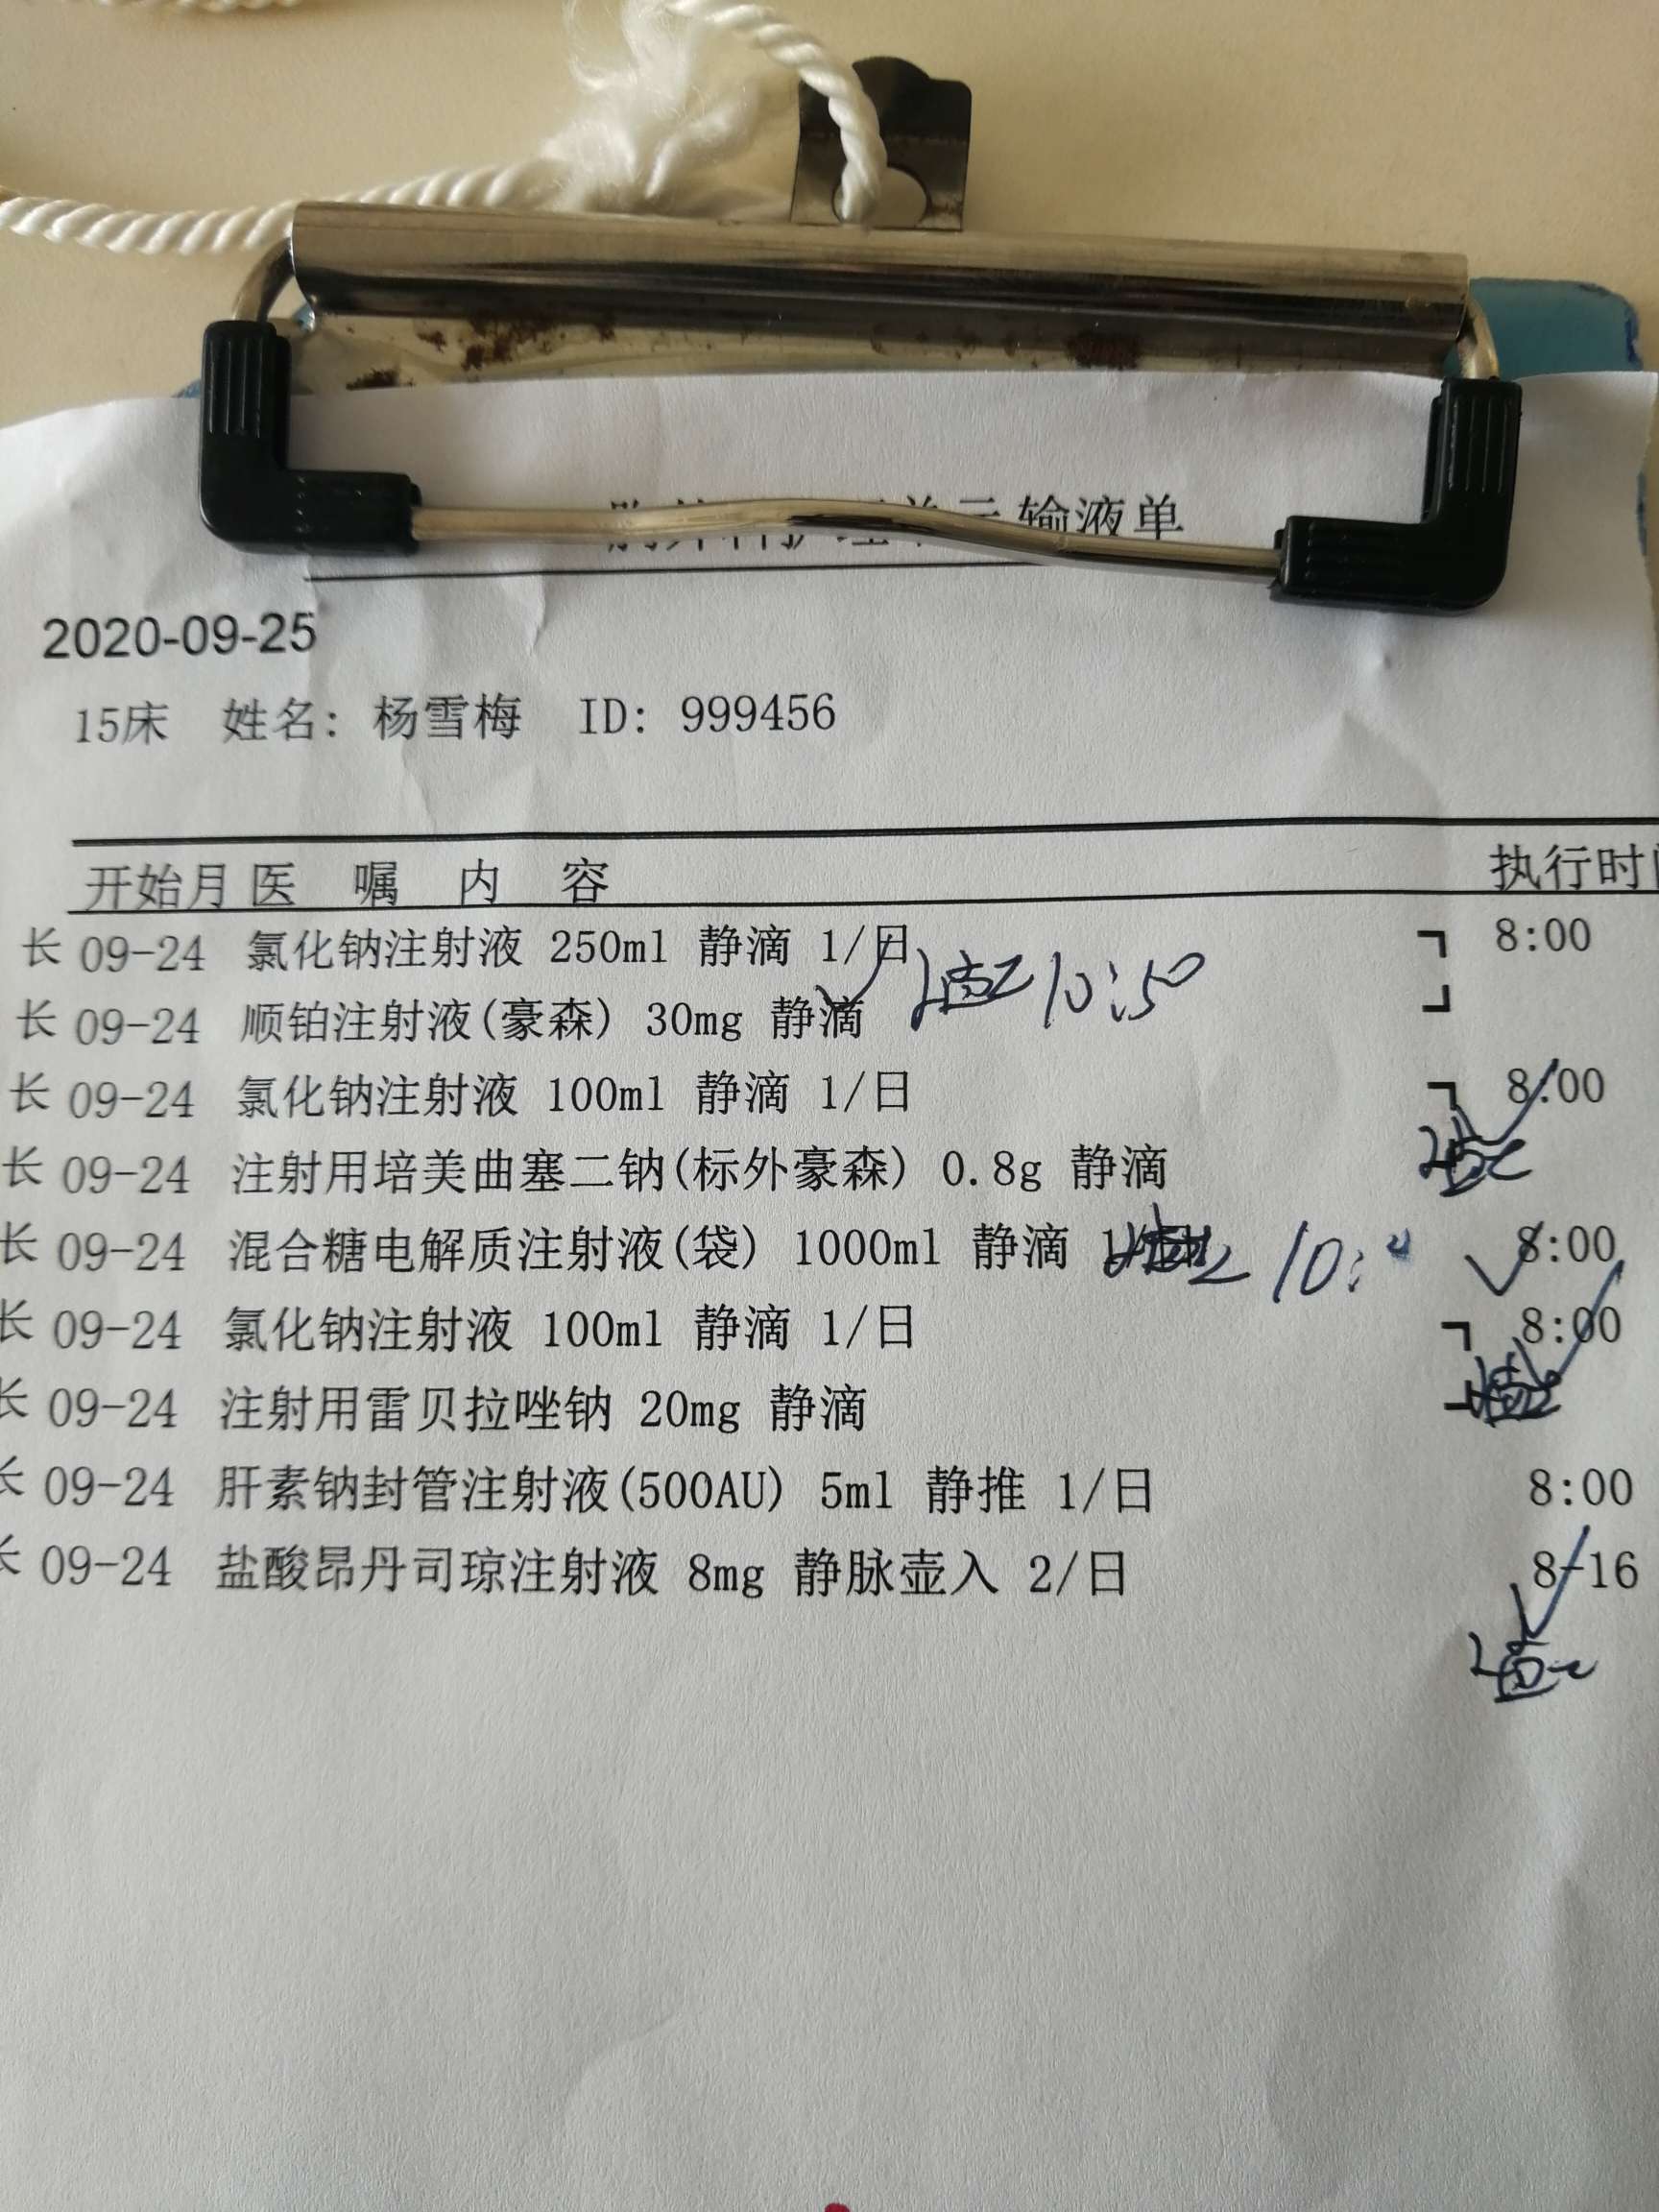 胸外科护理单元输液单
2020-09-25
15床 姓名: 杨雪梅 ID: 999456
开始月 医 嘱 内 容 执行时
长 09-24 氯化钠注射液 250ml 静滴 1/日 8:00
10:50
长 09-24 顺铂注射液(豪森) 30mg 静滴
长 09-24 氯化钠注射液 100ml 静滴 1/日 8:00
长 09-24 注射用培美曲塞二钠(标外豪森) 0.8g 静滴
长 09-24 混合糖电解质注射液(袋) 1000ml 静滴 8:00
长 09-24 氯化钠注射液 100ml 静滴 1/日 8:00
长 09-24 注射用雷贝拉唑钠 20mg 静滴
长 09-24 肝素钠封管注射液(500AU) 5ml 静推 1/日 8:00
长 09-24 盐酸昂丹司琼注射液 8mg 静脉壶入 2/日 8-16